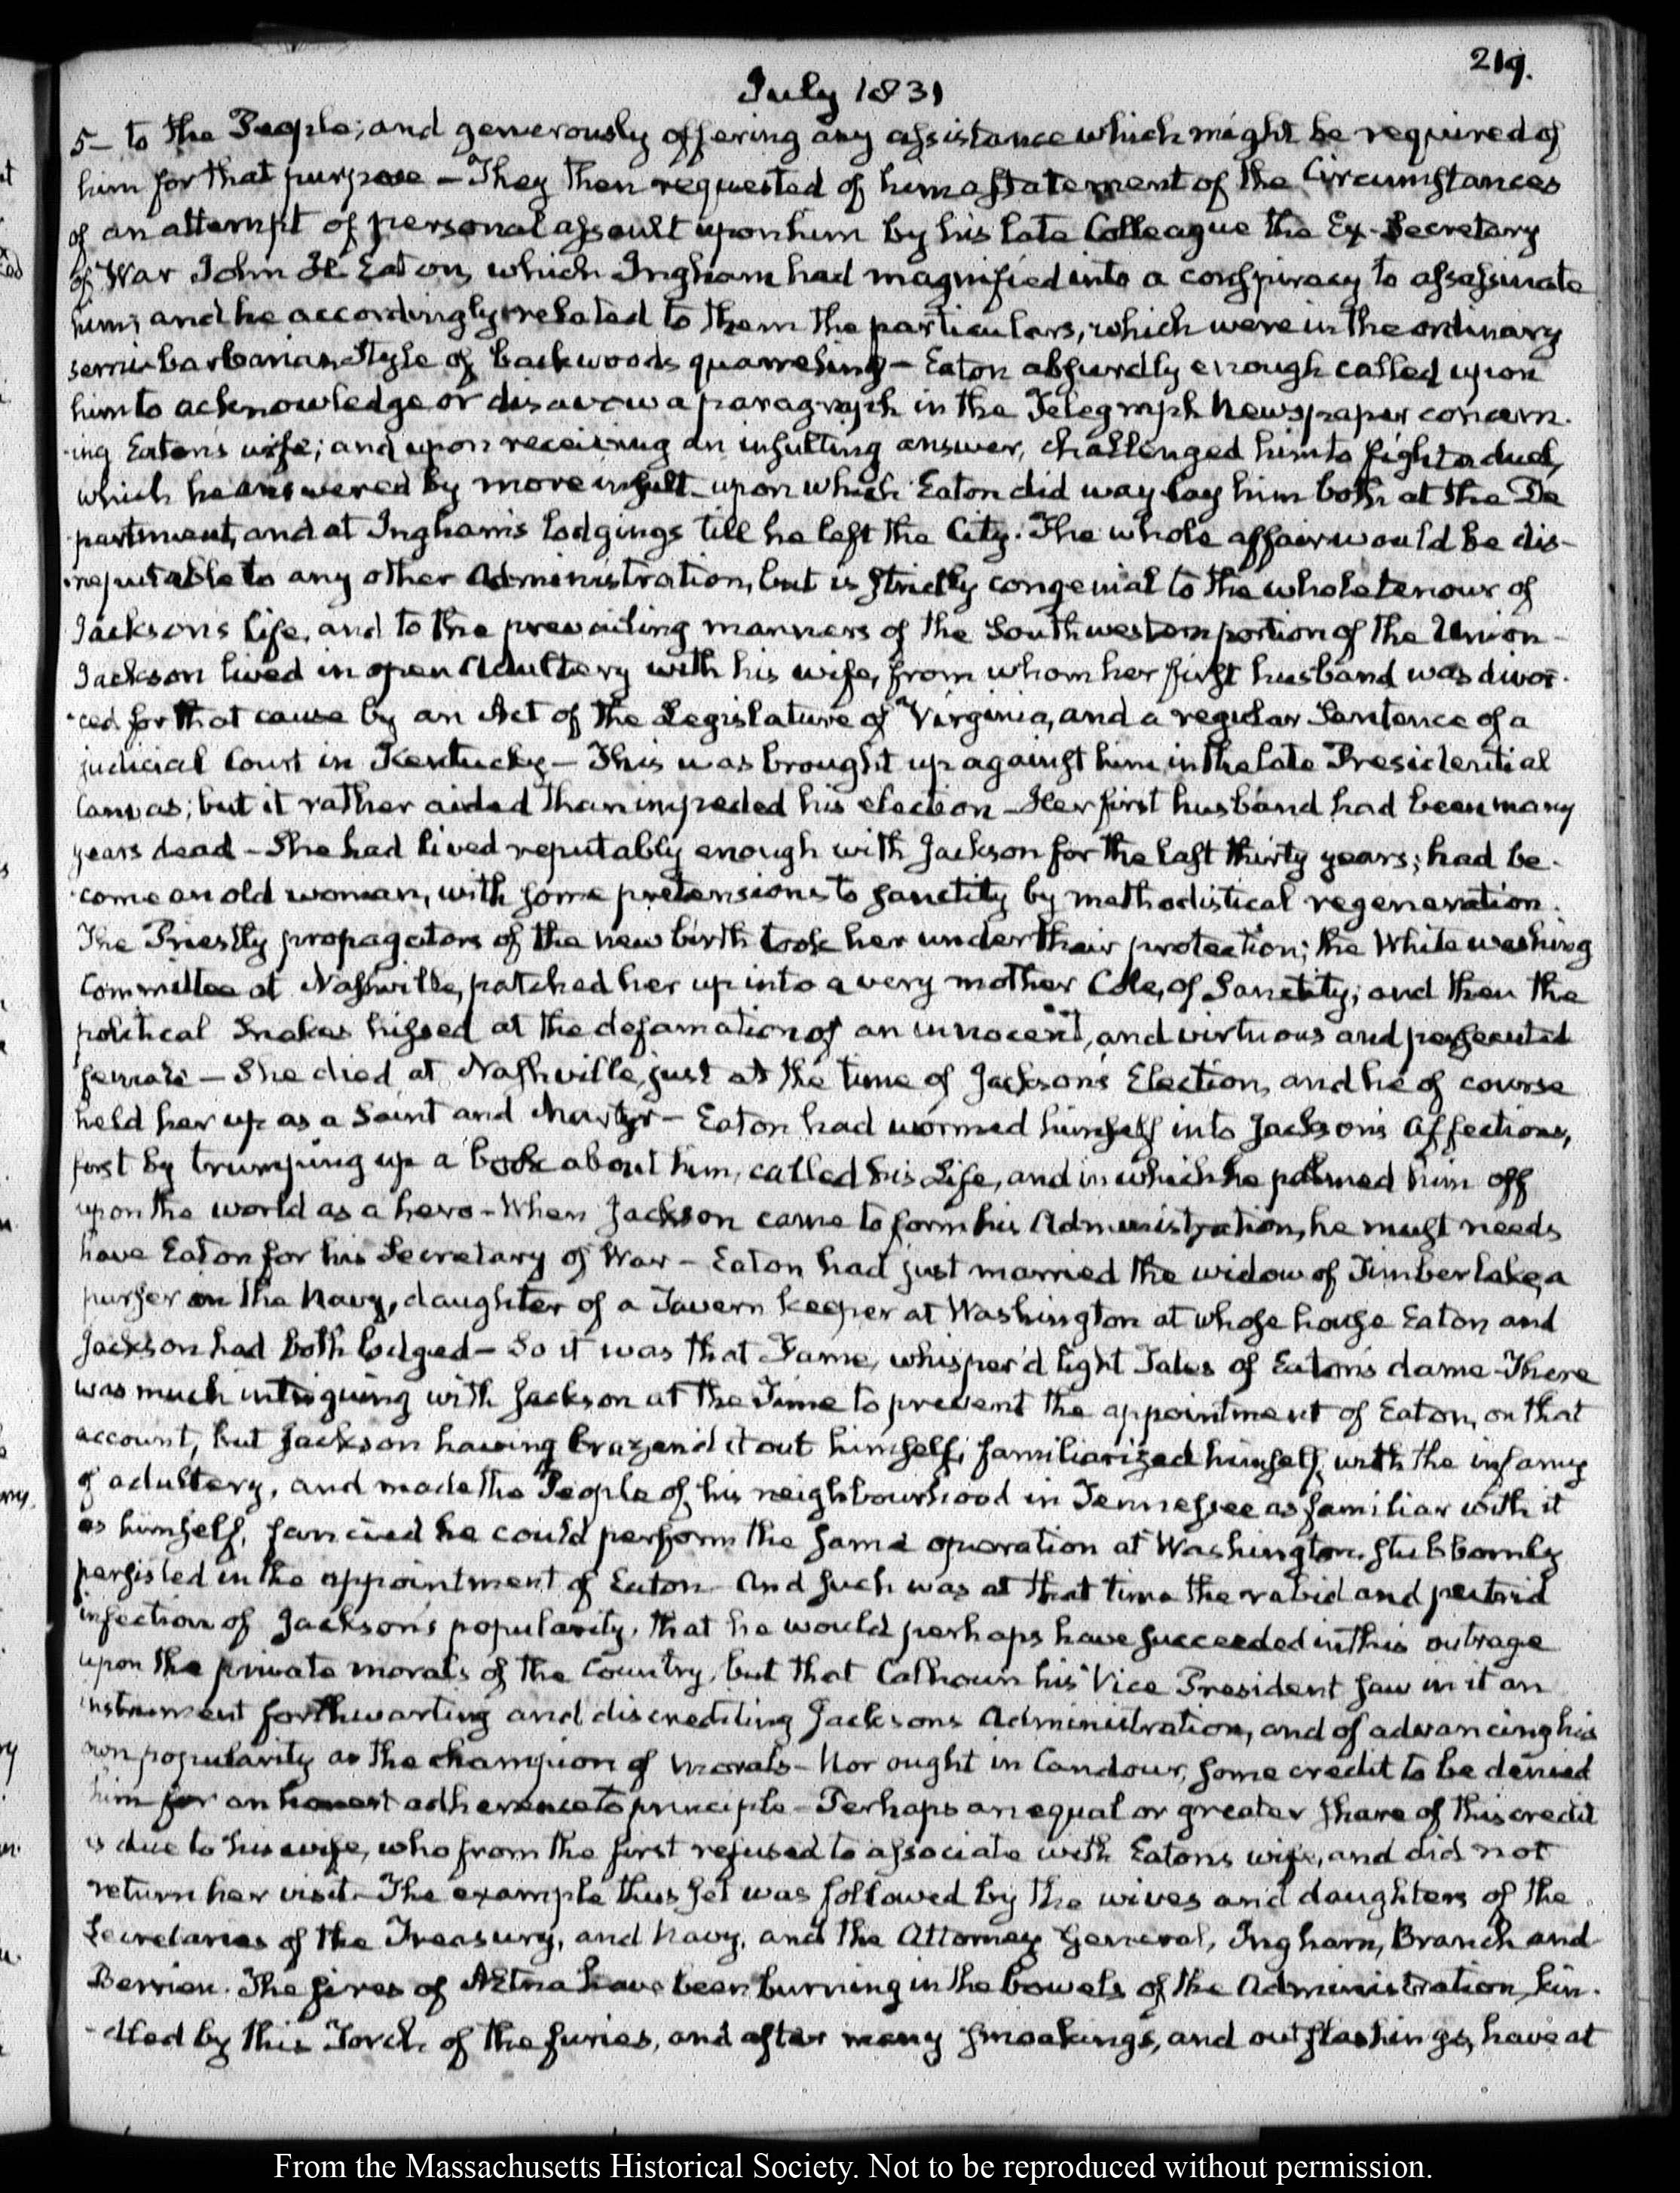 219.
July 1831
5– to the People; and generously offering any assistance which might be required of
him for that purpose – They then requested of him a statement of the Circumstances
of an attempt of personal assault upon him by his late Colleague the Ex-Secretary
of War John H. Eaton, which Ingham had magnified into a conspiracy to assassinate
him; and he accordingly related to them the particulars, which were in the ordinary
semi-barbarian Style of backwoods quarreling – Eaton absurdly enough called upon
him to acknowledge or disavow a paragraph in the Telegraph Newspaper concern-
-ing Eaton's wife; and upon receiving an insulting answer, challenged him to fight a duel,
which he answered by more insult – upon which Eaton did way-lay him both at the De
-partment, and at Ingham's lodgings till he left the City. The whole affair would be dis-
-reputable to any other Administration, but is strictly congenial to the whole tenour of
Jacksons life, and to the prevailing manners of the Southwestern portion of the Union –
Jackson lived in open Adultery with his wife, from whom her first husband was divor-
-ced for that cause by an Act of the Legislature of Virginia, and a regular Sentence of a
judicial Court in Kentucky – This was brought up against him in the late Presidential
Canvas; but it rather aided than impeded his election – Her first husband had been many
years dead – She had lived reputably enough with Jackson for the last thirty years; had be-
-come an old woman, with some pretensions to sanctity by methodistical regeneration.
The Priestly propagators of the new birth took her under their protection; the White washing
Committee at Nashville, patched her up into a very mother Cole, of Sanctity; and then the
political Snakes hissed at the defamation of an innocent, and virtuous and persecuted
female – She died at Nashville, just at the time of Jackson's Election, and he of course
held her up as a Saint and Martyr – Eaton had wormed himself into Jackson's Affections,
first by trumping up a book about him, called his Life, and in which he palmed him off
upon the world as a hero – When Jackson came to form his Administration, he must needs
have Eaton for his Secretary of War – Eaton had just married the widow of Timberlake, a
purser in the Navy, daughter of a Tavern keeper at Washington at whose house Eaton and
Jackson had both lodged – So it was that Fame, whisper'd light Tales of Eaton's dame – There
was much intriguing with Jackson at the Time to prevent the appointment of Eaton, on that
account, but Jackson having brazen'd it out himself, familiarized himself with the infamy
of adultery, and made the People of his neighbourhood in Tennessee as familiar with it
as himself, fancied he could perform the same operation at Washington. stubbornly
persisted in the appointment of Eaton – And such was at that time the rabid and putrid
infection of Jackson's popularity, that he would perhaps have succeeded in this outrage
upon the private morals of the Country, but that Calhoun his Vice President saw in it an
instrument for thwarting and discrediting Jacksons Administration, and of advancing his
own popularity as the champion of morals – Nor ought in Candour, some credit to be denied
him for an honest adherence to principle – Perhaps an equal or greater share of this credit
is due to his wife, who from the first refused to associate with Eatons wife, and did not
return her visit – The example thus set was followed by the wives and daughters of the
Secretaries of the Treasury, and Navy, and the Attorney General, Ingham, Branch and
Berrien. The fires of Ætna have been burning in the bowels of the Administration, kin-
-dled by this Torch of the furies, and after many smoakings, and outflashings, have at
From the Massachusetts Historical Society. Not to be reproduced without permission.